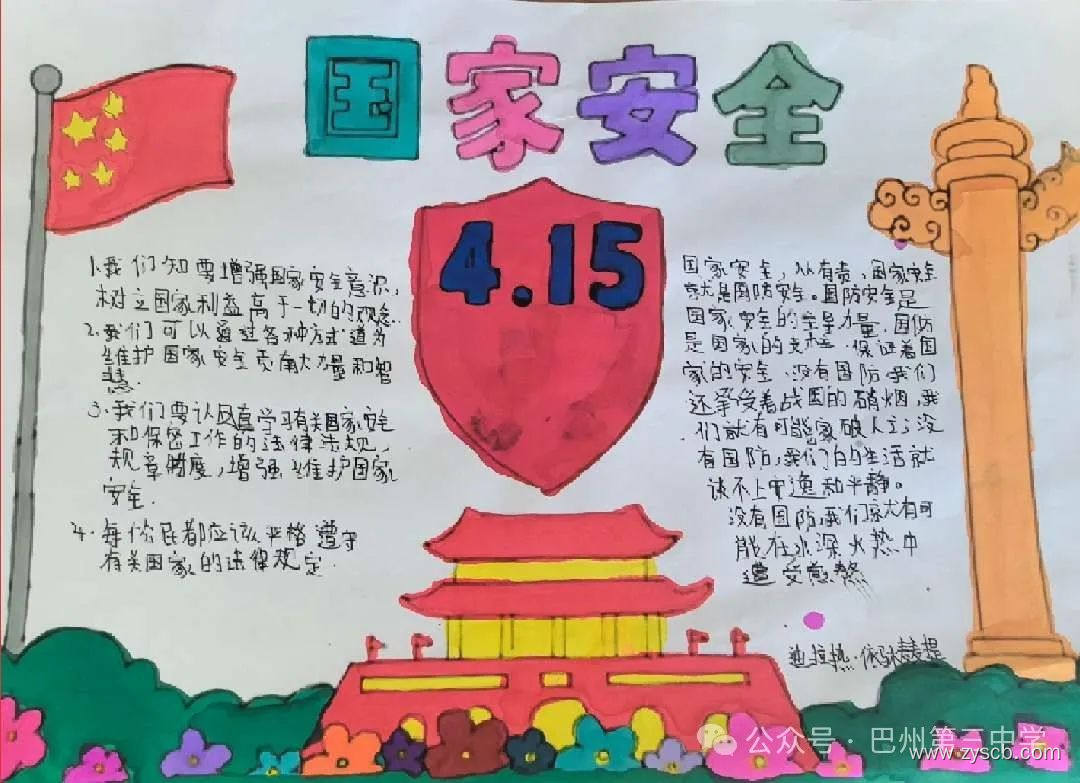 国家安全
4.15
1.我们知要增强国家安全意识,
树立国家利益高于一切的观念.
2.我们可以通过各种方式道为
维护国家安全贡献力量和智
慧.
3.我们要认真学习有关国家安全
和保密工作的法律法规,
规章制度,增强维护国家
安全.
4.每你民都应该严格遵守
有关国家的法律规定.
国家安全,从有责,国家安全
就是国防安全。国防安全是
国家安全的力量,国防
是国家的支柱.保证着国
家的安全.没有国防,我们
还承受着战国的硝烟,我
们就有可能家破人亡;没
有国防,我们的生活就
谈不上安逸和平静。
没有国防,我们就有可
能在水深火热中
遭受煎熬
迪拉热·依
公众号·巴州第三中学
www.zyscb.com